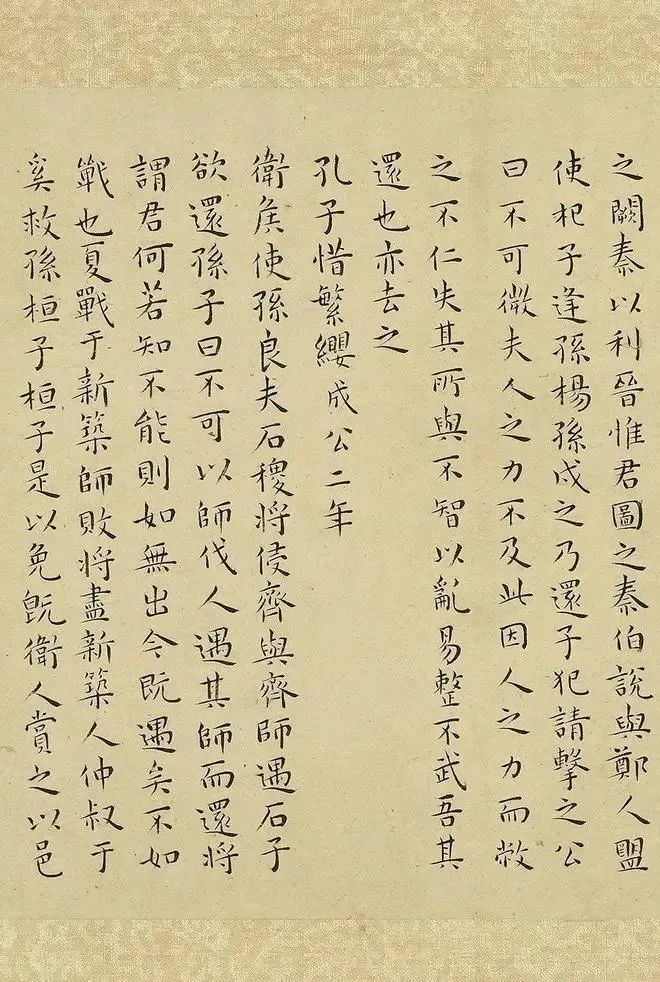 之闕秦以利晉惟君圖之秦伯說與鄭人盟
使杞子逢孫楊孫戍之乃還子犯請擊之公
曰不可微夫人之力不及此因人之力而敝
之不仁失其所與不智以亂易整不武吾其
還也亦去之
孔子惜繁纓成公二年
衛矦使孫良夫石稷將侵齊與齊師遇石子
欲還孫子曰不可以師伐人遇其師而還將
謂君何若知不能則如無出今既遇矣不如
戰也夏戰于新築師敗將盡新築人仲叔于
奚救孫桓子桓子是以免既衛人賞之以邑